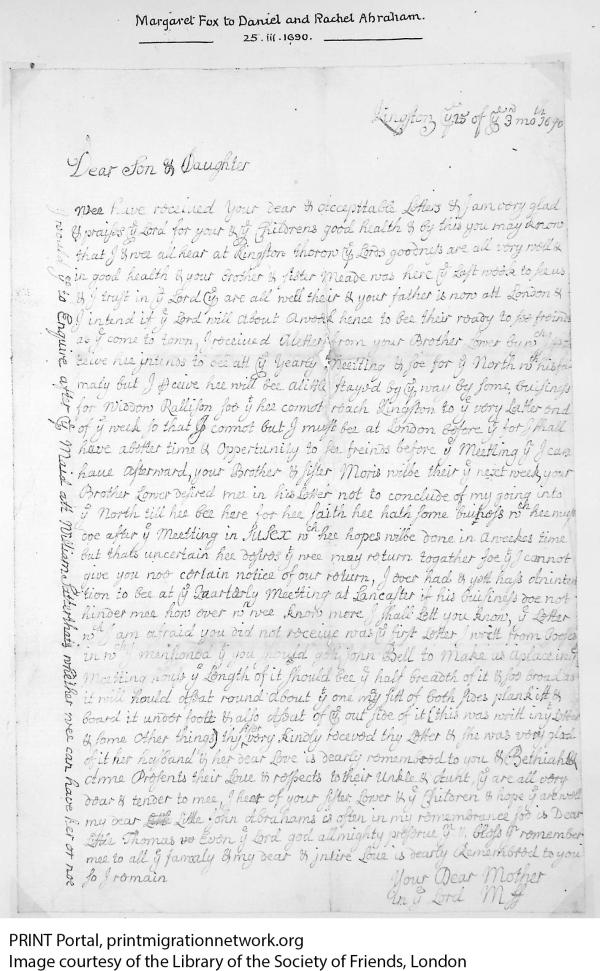 Margaret Fox to Daniel and Rachel Abraham.
25. iii. 1690.
Kingston ye 25 of ye 3rd moth 1690
Dear Son & Daughter
Wee have received your dear & acceptable Letters & I am very glad
& praises ye Lord for your & ye Childrens good health & by this you may know
that I & wee all hear at Kingston thorow ye Lords goodness are all very well &
in good health & your brother & sister Meade was here ye last week to see us
& I trust in ye Lord they are all well their & your father is now att London &
I intend if ye Lord will about a week hence to bee their ready to see freinds
as ye come to town, I received a letter from your Brother Lower by wch
hee intends to bee att ye Yearly Meeting & soe for ye North wth his fa
maly but I hee will bee a little stayed by ye way by some buissness
for Widdow Rallison soe yt hee connot reach Kingston to ye very latter end
of ye week so that I connot but I must bee at London before yt for I shall
have a better time & opportunity to see freinds before ye Meeting yn I can
have afterward, your Brother & sister Moris wilbe their ye next week, your
Brother Lower desired mee in his Letter not to conclude of my going into
ye North till hee bee here for hee saith hee hath some buissness wch hee must
doe after ye Meetting in Susex wch hee hopes wilbe done in a weekes time
but thats uncertain hee desires yt wee may return together soe yt I cannot
give you noe certain notice of our return, I ever had & yett hath an inten
tion to bee at ye Quarterly Meeting at Lancaster if his buisness doe not
hinder mee how ever wn wee know more I shall lett you know, ye Letter
wch I am afraid you did not receive was ye first Letter I writt from
in wch I mentioned yt you should gett John Bell to make us a place in ye
Meetting house ye Length of it should bee ye half breadth of it & soe broad as
it will hould a seat round about ye one may sitt of both sides plank itt &
board it under foott & also a seat of ye out side of it (this was writt in ye Letter
& some other things) very kindly received thy Letter & she was very glad
of it her husband & her dear Love is dearly remembred to you & Bethiah &
Anne presents their Love & respects to their Unkle & Aunt, ye are all very
dear & tender to mee, I heer of your sister Lower & ye Children & hope ye are well
my dear Little John Abrahams is often in my remembrance soe is Dear
Little Thomas Even ye Lord god allmighty preserve & bless remember
mee to all ye famaly & my dear & intire Love is dearly Remembred to you
So I remain
Your Dear Mother
in ye Lord M ff
I would to Enquire after ye Maid att William Satterthwaits whether wee can have her or noe
PRINT Portal, printmigrationnetwork.org
Image courtesy of the Library of the Society of Friends, London